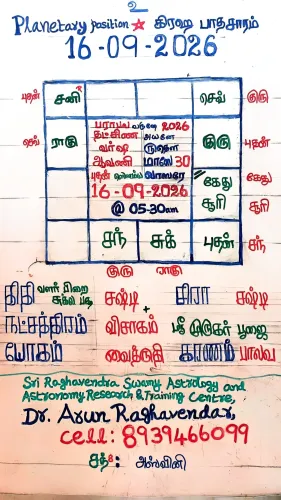 உ
Planetary position ★ கிரஹ பாதசாரம்
16-09-2026
புதன் சனி செவ் குரு
பராபவ வருஷ 2026
தட்சிண அயனே
வர்ஷ ருதௌ
ஆவணி மாஸ 30
புதன் வாஸரே
16-09-2026
@ 05-30am
செவ் ராகு குரு புதன்
கேது கேது
சூரி சூரி
சந் சுக் புதன் சந்
குரு ராகு
திதி வளர் பிறை சுக்ல பக்ஷ சஷ்டி + கிரா சஷ்டி
நட்சத்திரம் விசாகம் ஸ்ரீ முருகர் பூஜை
யோகம் வைத்ருதி காணம் பாலவ
Sri Raghavendra Swamy Astrology and
Astronomy Research & Training Centre,
Dr. Arun Raghavendar,
Cell: 8939466099
சந்8: அஸ்வினி